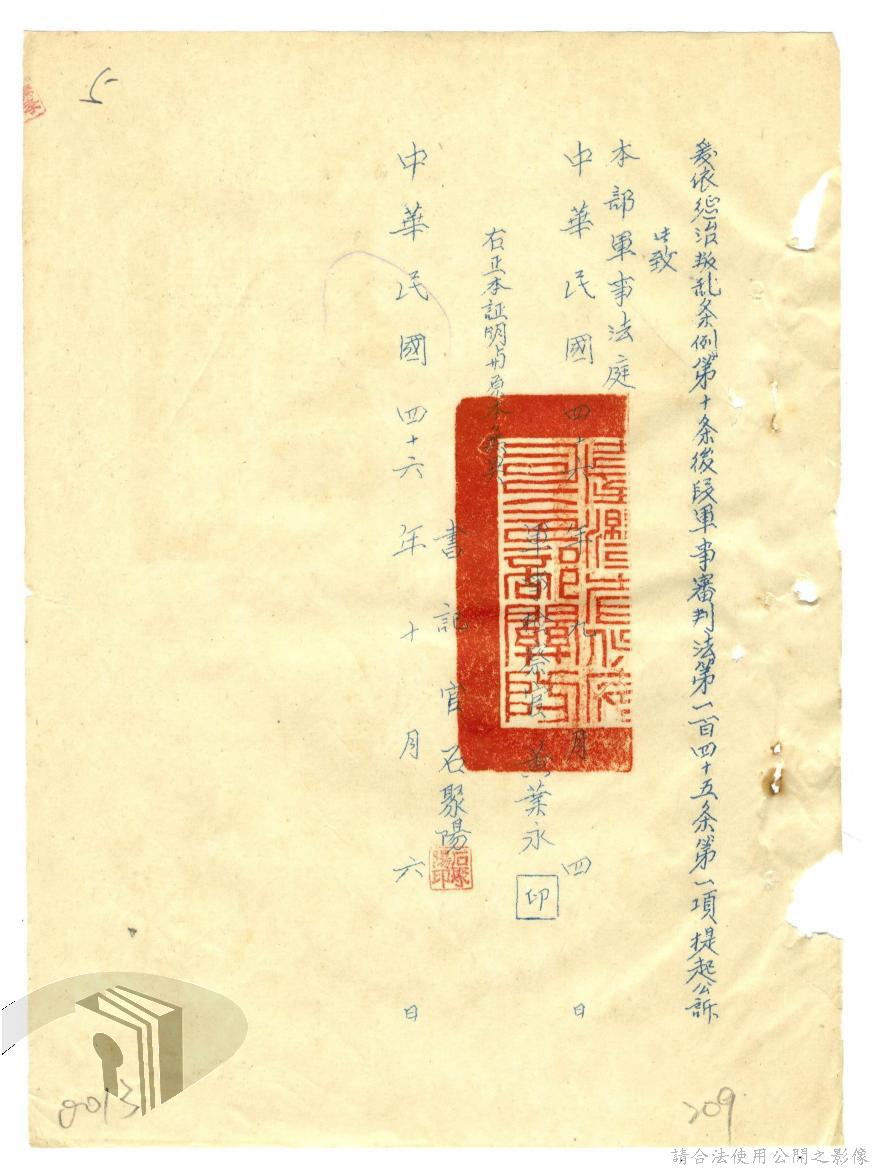 爰依惩治叛乱条例第十条後段軍事審判法第一百四十五条第一項提起公訴
此致
本部軍事法庭
中華民國四十六年九月四日
軍事檢察官 黃葉永 印
右正本証明与原本無異
書記官 石聚陽
石聚陽印
中華民國四十六年十月六日
5
0013
209
請合法使用公開之影像